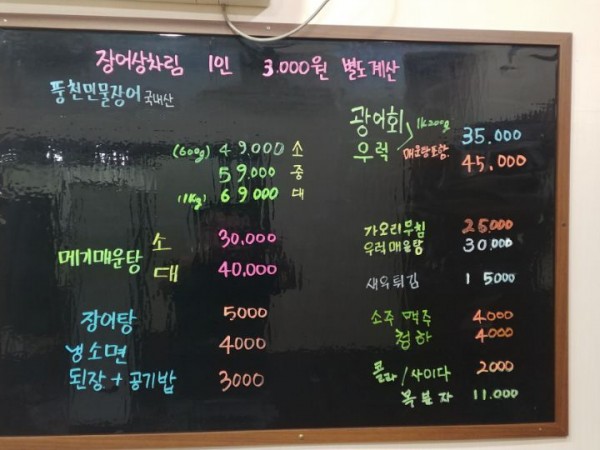 장어상차림 1인 3.000원 별도계산
풍천민물장어 국내산
(600g) 49,000 소
59,000 중
(1Kg) 69000 대
메기매운탕 소 30.000
대 40,000
장어탕 5000
냉소면 4000
된장 + 공기밥 3000
광어회 1k200g 35.000
우럭 매운탕포함. 45,000
가오리무침 25000
우럭매운탕 30,000
새우튀김 15000
소주 맥주 4.000
청하 4000
콜라/사이다 2000
복분자 11.000